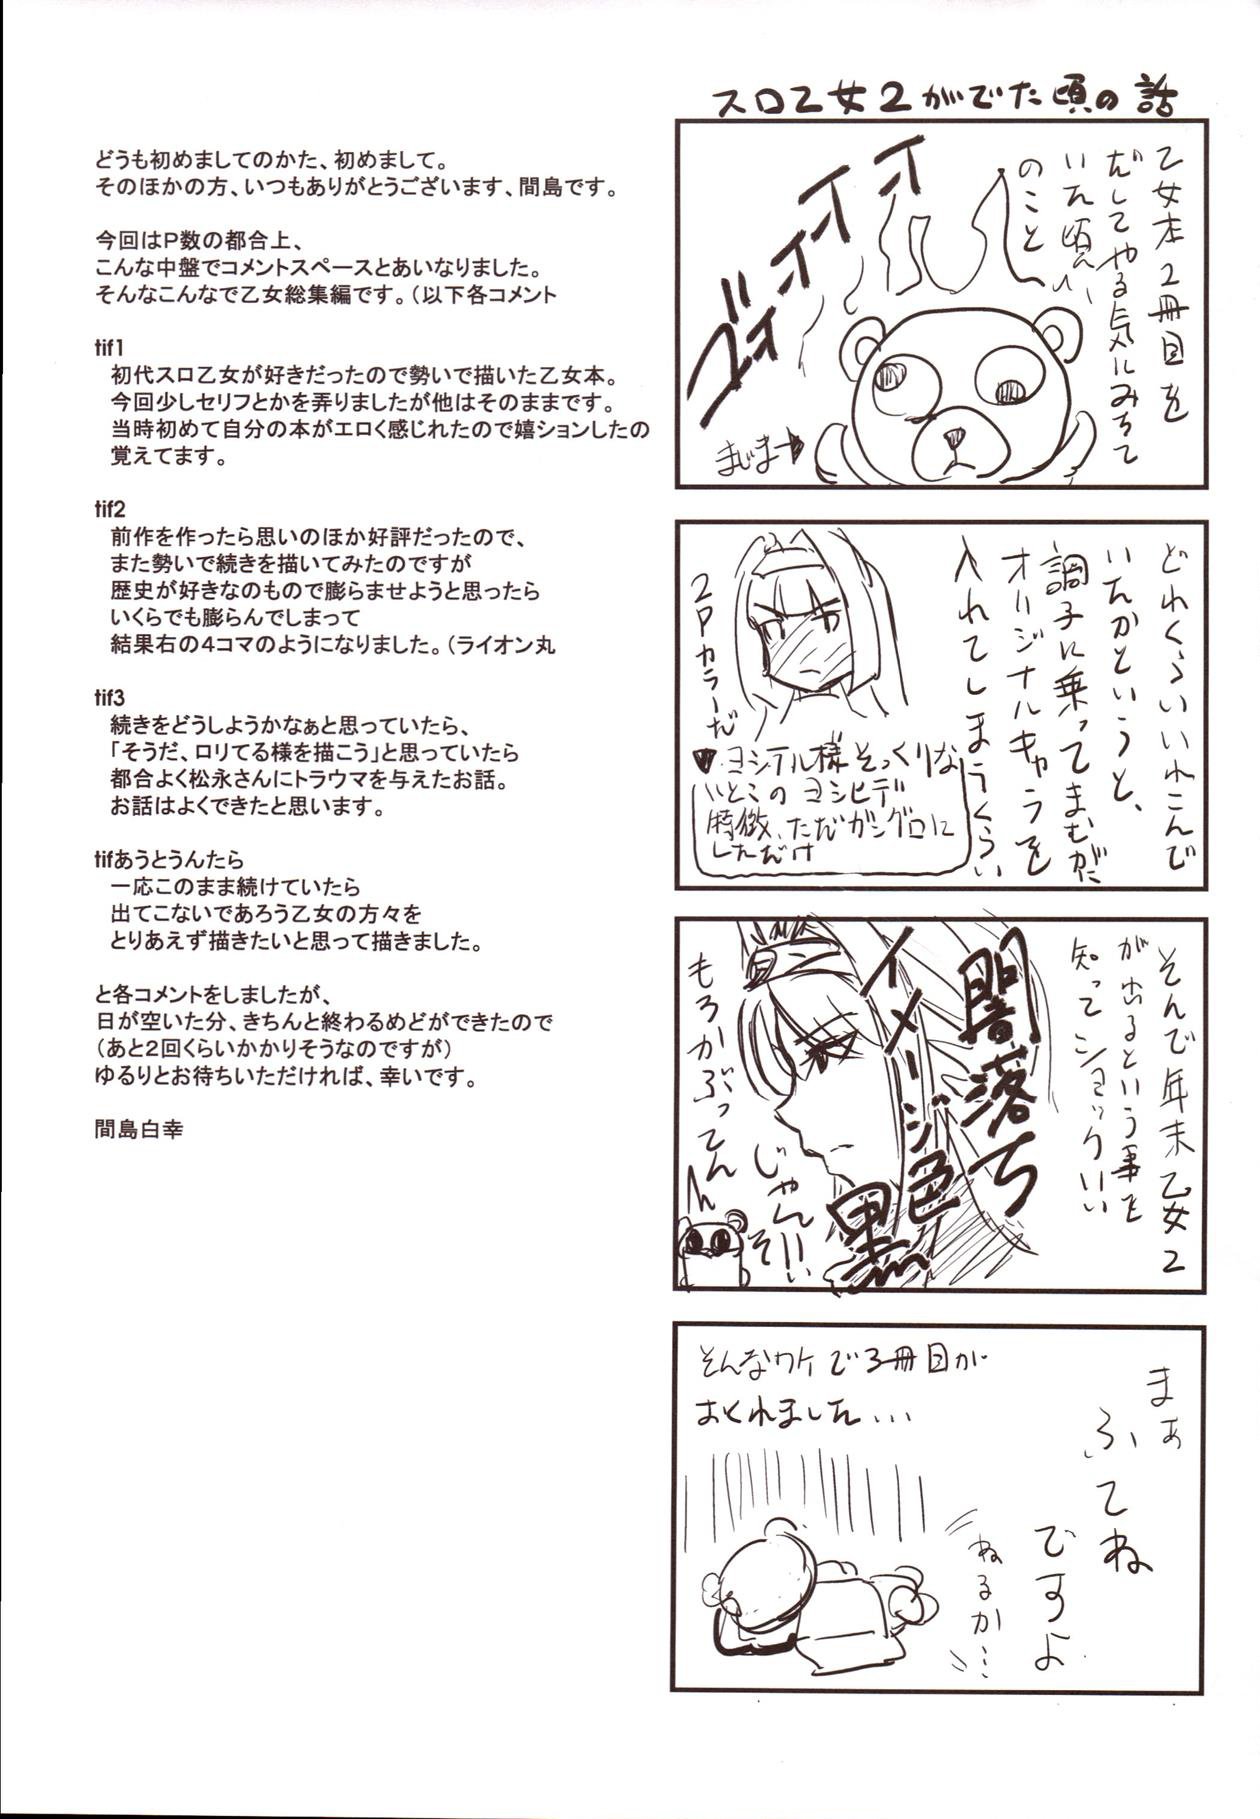 どうも初めましてのかた、初めまして。
そのほかの方、いつもありがとうございます、間島です。
今回はＰ数の都合上、
こんな中盤でコメントスペースとあいなりました。
そんなこんなで乙女総集編です。（以下各コメント
tif1
初代スロ乙女が好きだったので勢いで描いた乙女本。
今回少しセリフとかを弄りましたが他はそのままです。
当時初めて自分の本がエロく感じれたので嬉ションしたの
覚えてます。
tif2
前作を作ったら思いのほか好評だったので、
また勢いで続きを描いてみたのですが
歴史が好きなのもので膨らませようと思ったら
いくらでも膨らんでしまって
結果右の４コマのようになりました。（ライオン丸
tif3
続きをどうしようかなぁと思っていたら、
「そうだ、ロリてる様を描こう」と思っていたら
都合よく松永さんにトラウマを与えたお話。
お話はよくできたと思います。
tifあうとうんたら
一応このまま続けていたら
出てこないであろう乙女の方々を
とりあえず描きたいと思って描きました。
と各コメントをしましたが、
日が空いた分、きちんと終わるめどができたので
（あと２回くらいかかりそうなのですが）
ゆるりとお待ちいただければ、幸いです。
間島白幸
スロ乙女２がでた頃の話
乙女本２冊目を
だしてやる気にみちて
いた頃
のこと
ゴオオオオオ
まじま→
どれくらいいれこんで
いたかというと、
調子に乗ってまむがに
オリジナルキャラを
入れてしまうくらい
２Ｐカラーだ
♥ヨシテル様そっくりな
いとこのヨシヒデ
特徴、ただガングロに
しただけ
そんで年末乙女２
が出るという事を
知ってショックいい
闇落ち
イメージ色
黒
もろかぶってん
じゃん!!
そんなワケで３冊目が
おくれました...
まぁ
ふてね
ですよ
ねるか…